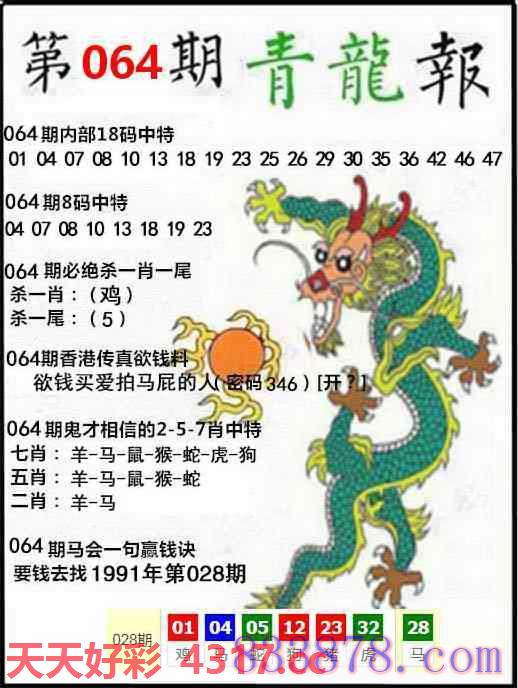 第064期青龍報
064期内部18码中特
01 04 07 08 10 13 18 19 23 25 26 29 30 35 36 42 46 47
064期8码中特
04 07 08 10 13 18 19 23
064期必绝杀一肖一尾
杀一肖：（鸡）
杀一尾：（5）
064期香港传真欲钱料
欲钱买爱拍马屁的人（密码346）[开？]
064期鬼才相信的2-5-7肖中特
七肖：羊-马-鼠-猴-蛇-虎-狗
五肖：羊-马-鼠-猴-蛇
二肖：羊-马
064期马会一句赢钱诀
要钱去找1991年第028期
028期 01 04 05 12 23 32 28
鸡 马 蛇 狗 猪 虎 马
天天好彩 4317.cc
878.com